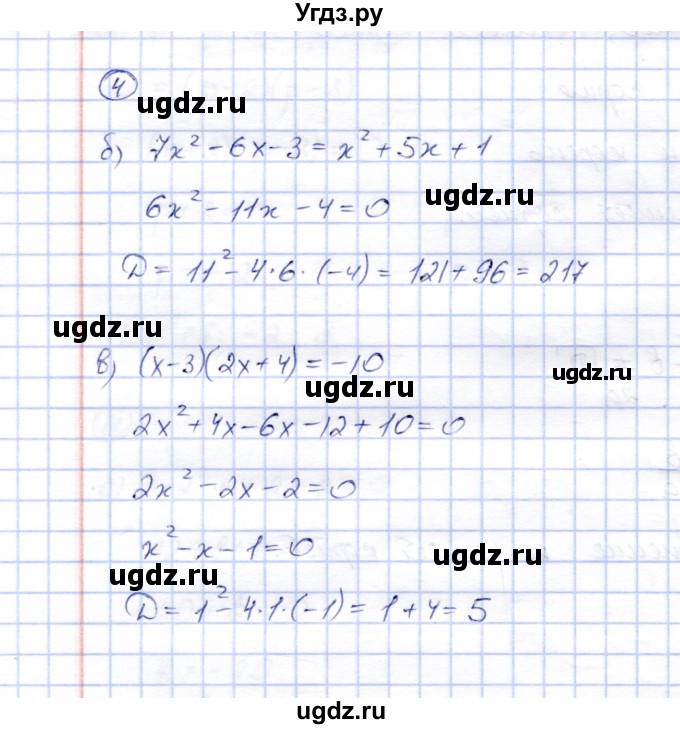 Угдз.ру
4
ugdz.ru
ugdz.ru
б) 7x² - 6x - 3 = x² + 5x + 1
ugdz.ru
6x² - 11x - 4 = 0
D = 11² - 4·6·(-4) = 121 + 96 = 217
ugdz.ru
в) (x-3)(2x+4) = -10
ugdz.ru
ugdz.ru
2x² + 4x - 6x - 12 + 10 = 0
2x² - 2x - 2 = 0
x² - x - 1 = 0
ugdz.ru
ugdz.ru
D = 1² - 4·1·(-1) = 1 + 4 = 5
ugdz.ru
ugdz.ru